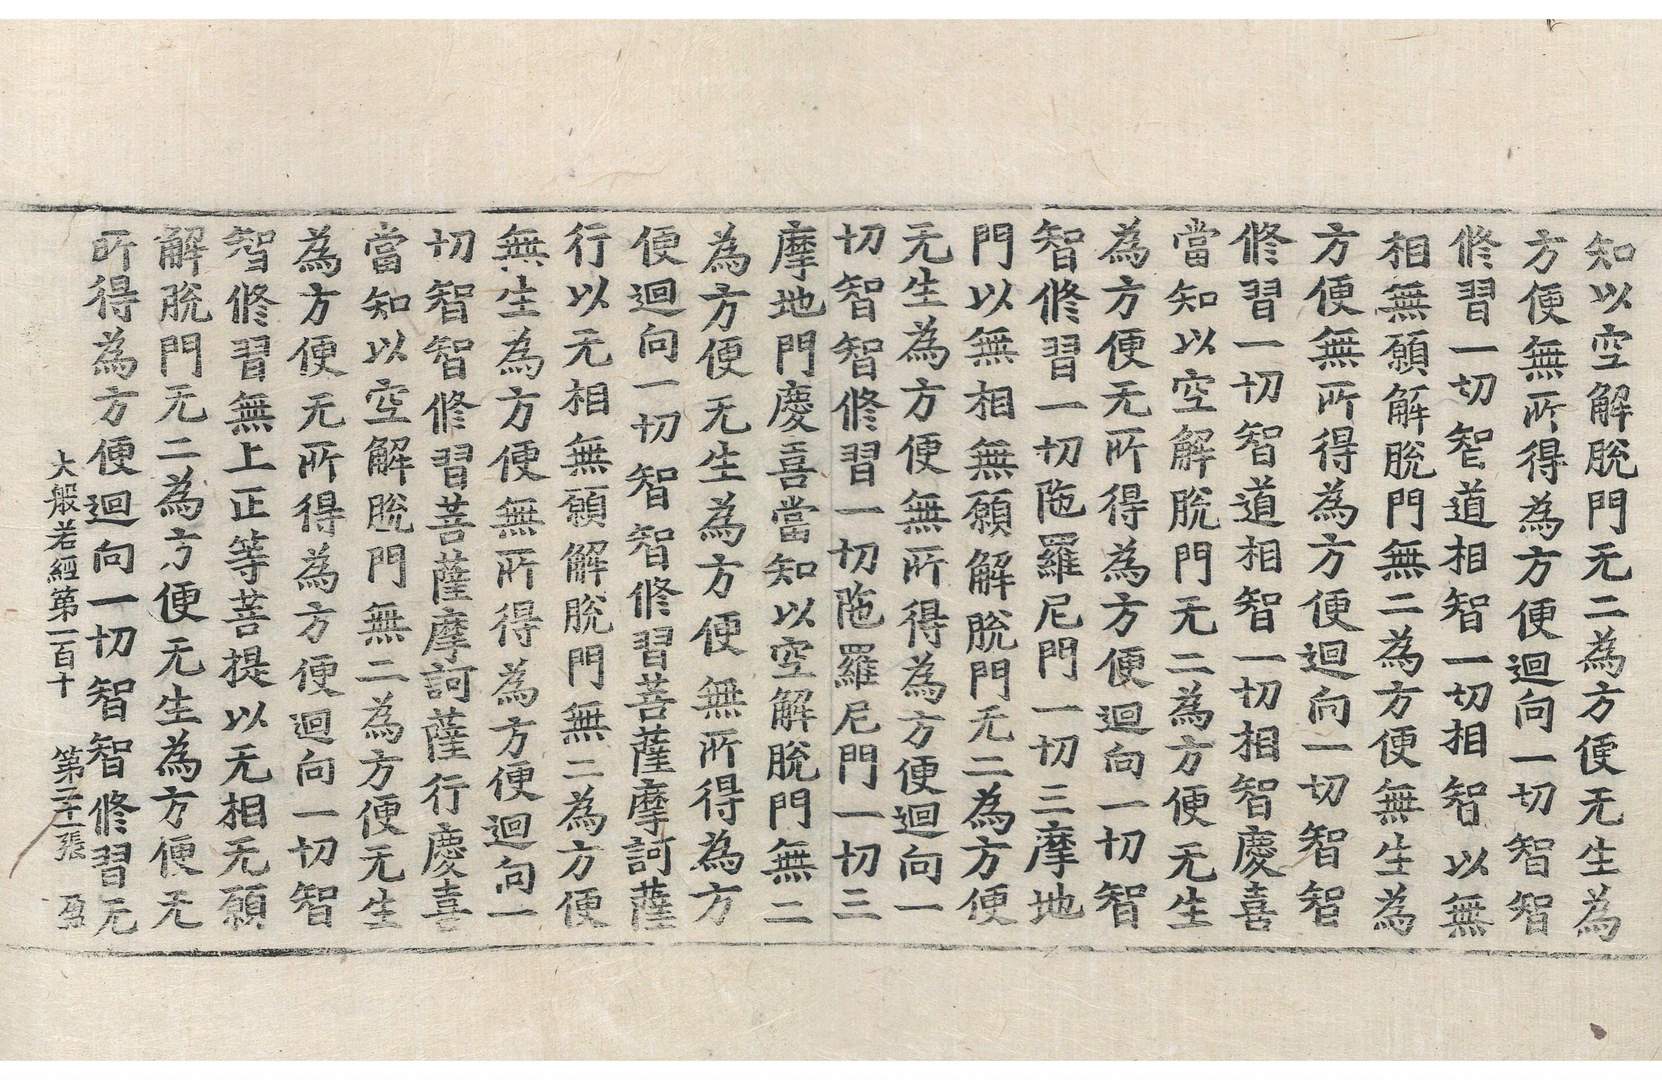 知以空解脫門无二為方便无生為
方便無所得為方便迴向一切智智
修習一切智道相智一切相智以無
相無願解脫門無二為方便無生為
方便無所得為方便迴向一切智智
修習一切智道相智一切相智慶喜
當知以空解脫門无二為方便无生
為方便无所得為方便迴向一切智
智修習一切陁羅尼門一切三摩地
門以無相無願解脫門无二為方便
无生為方便無所得為方便迴向一
切智智修習一切陁羅尼門一切三
摩地門慶喜當知以空解脫門無二
為方便无生為方便無所得為方
便迴向一切智智修習菩薩摩訶薩
行以无相無願解脫門無二為方便
無生為方便無所得為方便迴向一
切智智修習菩薩摩訶薩行慶喜
當知以空解脫門無二為方便无生
為方便无所得為方便迴向一切智
智修習無上正等菩提以无相无願
解脫門无二為方便无生為方便无
所得為方便迴向一切智智修習无
大般若經第一百十 第二十一張 盈